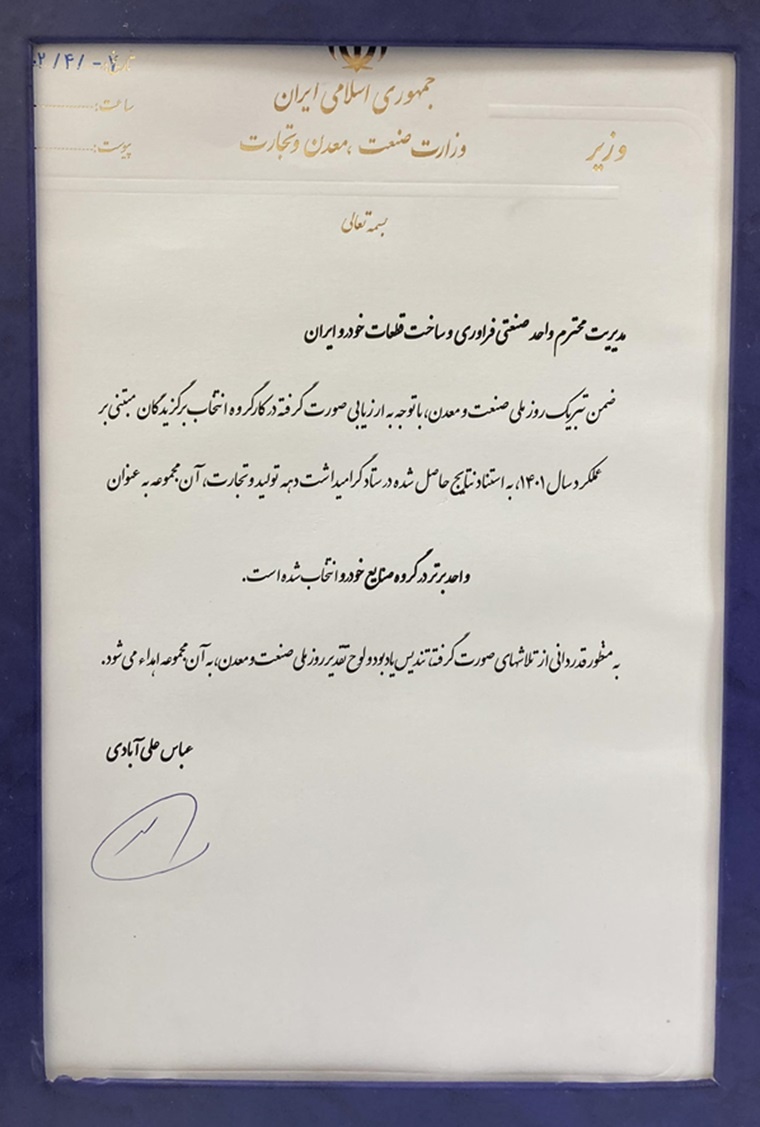 جمهوری اسلامی ایران
وزارت صنعت ،معدن وتجارت
وزیر
تاریخ:
ساعت:
پیوست:
بسمه تعالی
مدیریت محترم واحد صنعتی فراوری و ساخت قطعات خودرو ایران
ضمن تبریک روز ملی صنعت و معدن، با توجه به ارزیابی صورت گرفته در کارگروه انتخاب برگزیدگان مبتنی بر
عملکرد سال ۱۴۰۱، به استناد نتایج حاصل شده در ستاد گرامیداشت دهه تولید و تجارت، آن مجموعه به عنوان
واحد برتر در گروه صنایع خودرو انتخاب شده است.
به منظور قدردانی از تلاشهای صورت گرفته، تندیس یادبود و لوح تقدیر روز ملی صنعت و معدن، به آن مجموعه اهداء می شود.
عباس علی آبادی